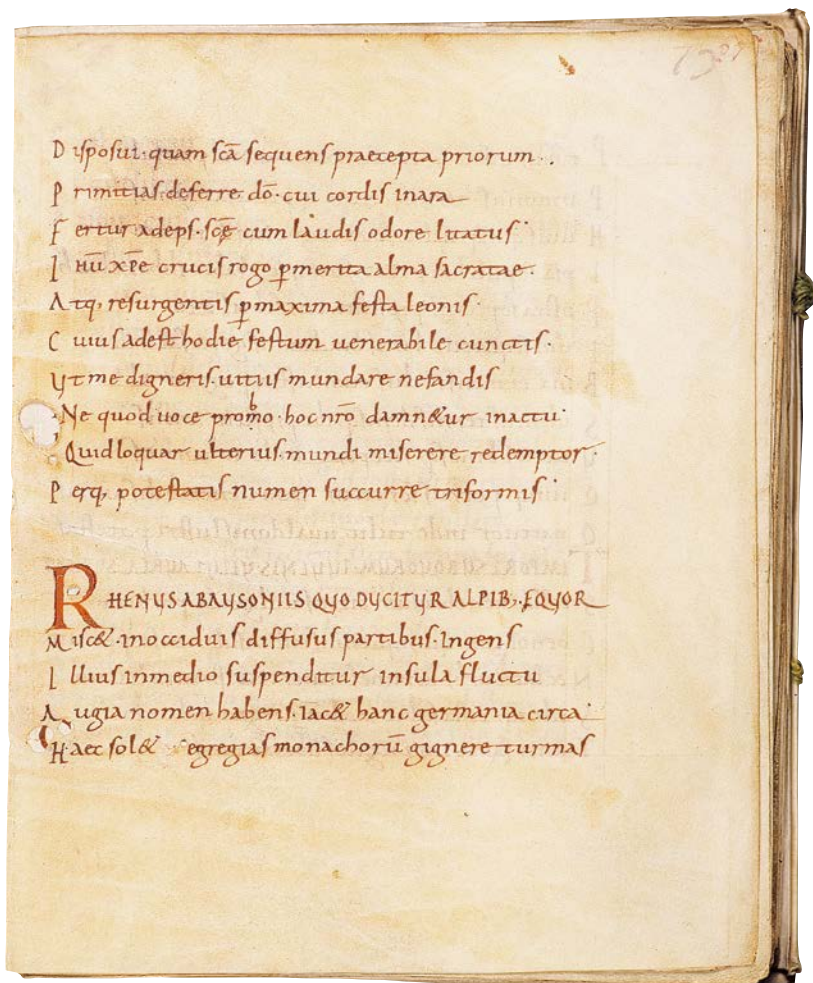 Disposui · quam scā sequens praecepta priorum ·.
Primitias deferre dō · cui cordis inara
Fertur adeps · scę cum laudis odore litatus ·
Ihū xp̄e crucis rogo ꝑ merita alma sacratae ·
Atq, resurgentis ꝑ maxima festa leonis ·
Cuius adest hodie festum uenerabile cunctis ·
Vt me digneris · uitiis mundare nefandis
Ne quod uoce promo · hoc nrō damn&ur inactu ·
Quid loquar ulterius · mundi miserere redemptor ·
Perq, potestatis numen succurre triformis ·
RHENVS ABAVSONIIS QVO DVCITVR ALPIB; ĘQVOR
Misc& · inocciduis diffusus partibus · Ingens
Illius inmedio suspenditur insula fluctu
Augia nomen habens · iac& hanc germania circa ·
Haec sol& egregias monachorū gignere turmas